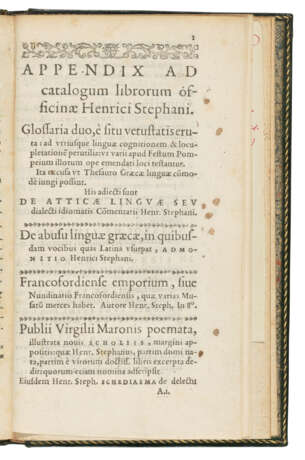 1
APPENDIX AD
catalogum librorum óf-
ficinæ Henrici Stephani.
Glossaria duo, è situ vetustatis eru-
ta: ad vtriusque linguæ cognitionem & locu-
pletationẽ perutilia: vt varij apud Festum Pom-
peium illorum ope emendati loci testantur.
Ita excusa vt Thesauro Græcæ linguæ cõmo-
dè iungi possint.
His adiecti sunt
DE ATTICÆ LINGVÆ SEV
dialecti idiomatis Cõmentarii Henr. Stephani.
De abusu linguæ græcæ, in quibus-
dam vocibus quas Latina vsurpat, ADMO-
NITIO Henrici Stephani.
Francofordiense emporium, siue
Nundinatio Francofordiensis, quæ varias Mu-
sarũ merces habet. Autore Henr. Steph. In 8°.
Publii Virgilii Maronis poemata,
illustrata nouis SCHOLIIS, margini ap-
positis: quæ Henr. Stephanus, partim domi na-
ta, partim è virorum doctiss. libris excerpta de-
dit: quorum etiam nomina adscripsit.
Eiusdem Henr. Steph. SCHEDIASMA de delectu
A.i.